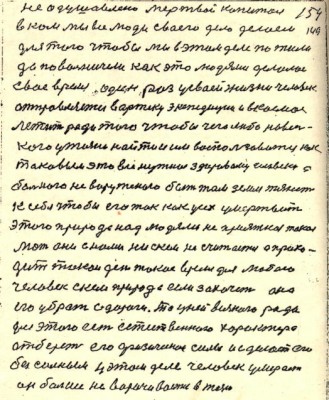 не одушавлено мертвой капитал 154
вком мы вс люди своего дела делаем 149
для того чтобы мы в этом деле по тили
да поволничем как это людями делалос
свае время один раз у всей жизни человек
отправляется в артику экспедицию и в космос
летит ради того чтобы чего либо новен-
кого утаяно найти и им восползоватся как
таковым это всё нужна здоровому человеку а
больного не выручиш его быт там земля тянет
к себя чтобы его так как усех умертвит
этого природа над людями не приятная такая
мот они с нами ни с кем не считается а прихо-
дит такой ден такое время для любого
человек с кем природа сели захочит она
его убрат с дороги. то у ней всякого рода
для этого ест естественного характера
отберет его физичиские силы и сделает его
без силным у этом деле человек умирает
он больше не варачивается в тело